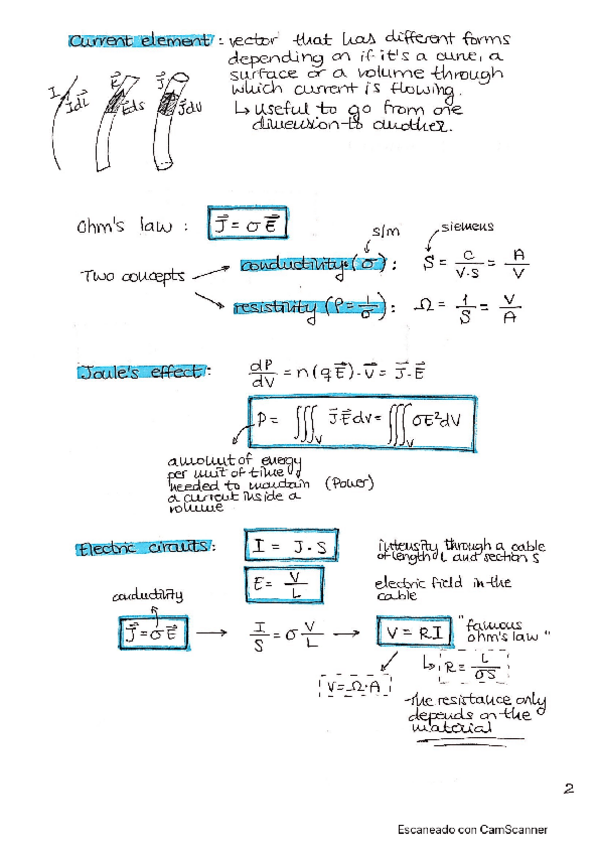 Current element: vector that has different forms
depending on if it's a curve, a
surface or a volume through
which current is flowing.
↳ useful to go from one
dimension to another.
I Idl E Eds J Jdv
Ohm's law: J⃗ = σE⃗
S/m siemens
Two concepts
conductivity (σ): S = C/V·S = A/V
resistivity (ρ = 1/σ): Ω = 1/S = V/A
Joule's effect: dP/dV = n(qE⃗)·V⃗ = J⃗·E⃗
P = ∭_V J⃗·E⃗dv = ∭_V σE²dV
amount of energy
per unit of time
needed to maintain (Power)
a current inside a
volume
Electric circuits: I = J·S intensity through a cable
of length L and section S
E = V/L electric field in the
cable
conductivity
J⃗ = σE⃗ → I/S = σ V/L → V = RI "famous
ohm's law"
↳ R = L/σS
V = Ω·A
-The resistance only
depends on the
material
2
Escaneado con CamScanner